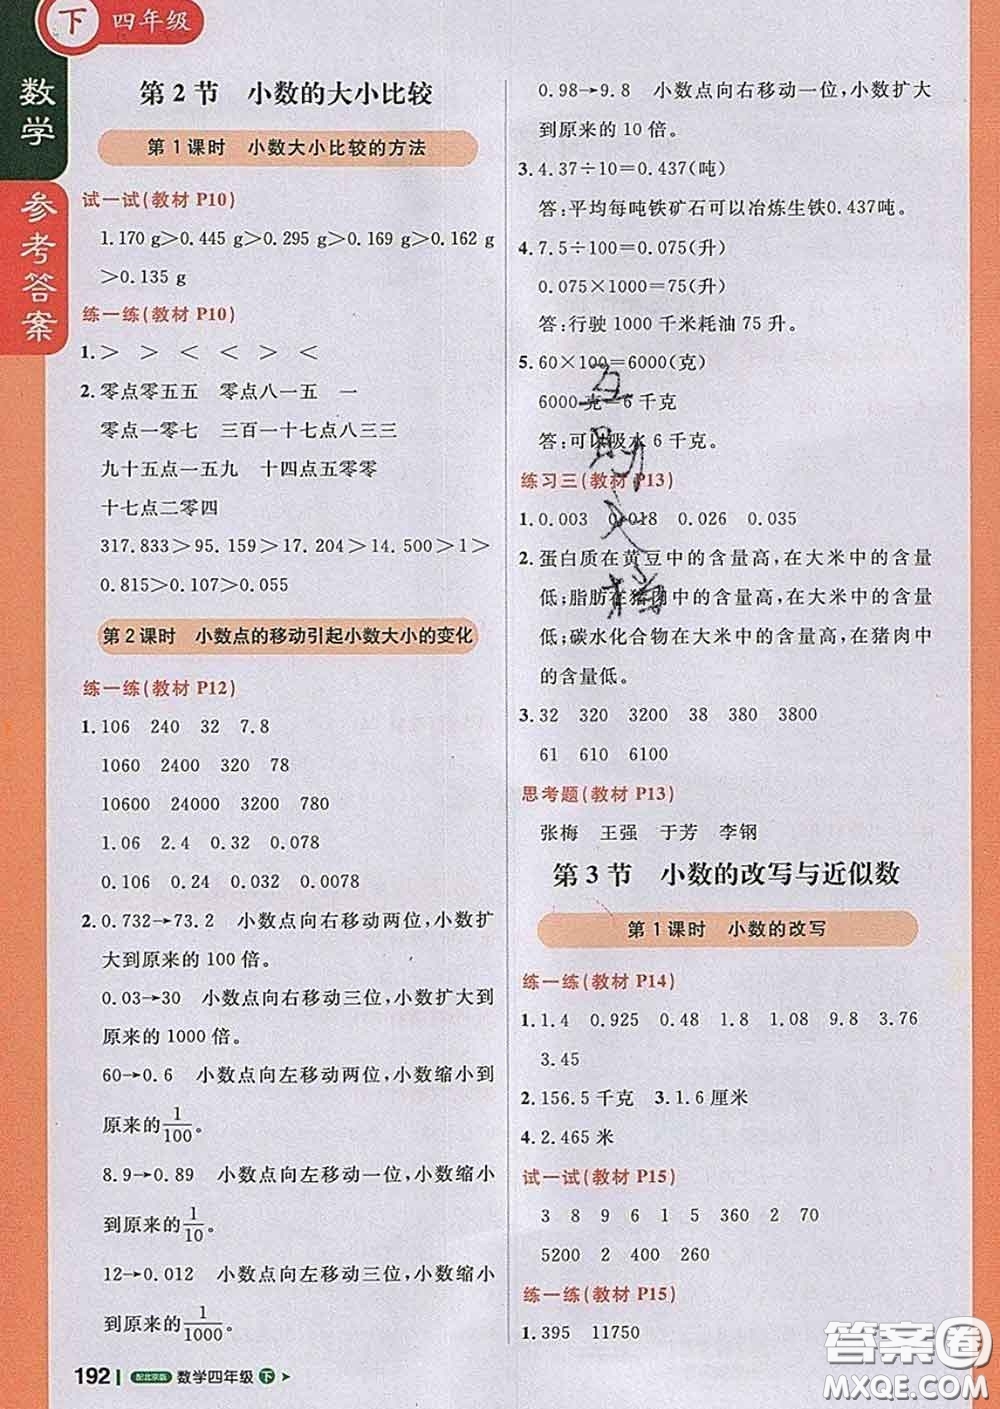 下 四年级
数学
参考答案
第 2 节　小数的大小比较
第 1 课时　小数大小比较的方法
试一试(教材 P10)
1.170 g＞0.445 g＞0.295 g＞0.169 g＞0.162 g
＞0.135 g
练一练(教材 P10)
1.＞　＞　＜　＜　＞　＜
2. 零点零五五　零点八一五　一
零点一零七　三百一十七点八三三
九十五点一五九　十四点五零零
十七点二零四
317.833＞95.159＞17.204＞14.500＞1＞
0.815＞0.107＞0.055
第 2 课时　小数点的移动引起小数大小的变化
练一练(教材 P12)
1. 106　240　32　7.8
1060　2400　320　78
10600　24000　3200　780
1.06　2.4　0.32　0.078
0.106　0.24　0.032　0.0078
2. 0.732→73.2　小数点向右移动两位,小数扩
大到原来的 100 倍。
0.03→30　小数点向右移动三位,小数扩大到
原来的 1000 倍。
60→0.6　小数点向左移动两位,小数缩小到
原来的1/100。
8.9→0.89　小数点向左移动一位,小数缩小
到原来的1/10。
12→0.012　小数点向左移动三位,小数缩小
到原来的1/1000。
192 配北京版 数学四年级 下
0.98→9.8　小数点向右移动一位,小数扩大
到原来的 10 倍。
3. 4.37÷10=0.437(吨)
答:平均每吨铁矿石可以冶炼生铁0.437吨。
4. 7.5÷100=0.075(升)
0.075×1000=75(升)
答:行驶 1000 千米耗油 75 升。
5. 60×100=6000(克)
6000 克=6 千克
答:可以吸水 6 千克。
练习三(教材 P13)
1. 0.003　0.018　0.026　0.035
2. 蛋白质在黄豆中的含量高,在大米中的含量
低;脂肪在猪肉中的含量高,在大米中的含量
低;碳水化合物在大米中的含量高,在猪肉中
的含量低。
3. 32　320　3200　38　380　3800
61　610　6100
思考题(教材 P13)
张梅　王强　于芳　李钢
第 3 节　小数的改写与近似数
第 1 课时　小数的改写
练一练(教材 P14)
1. 1.4　0.925　0.48　1.8　1.08　9.8　3.76
3.45
2. 156.5 千克　3. 1.6 厘米
4. 2.465 米
试一试(教材 P15)
3　8　9　6　1　5　360　2　70
5200　2　400　260
练一练(教材 P15)
1. 395　11750
答案圈
MXQE.COM